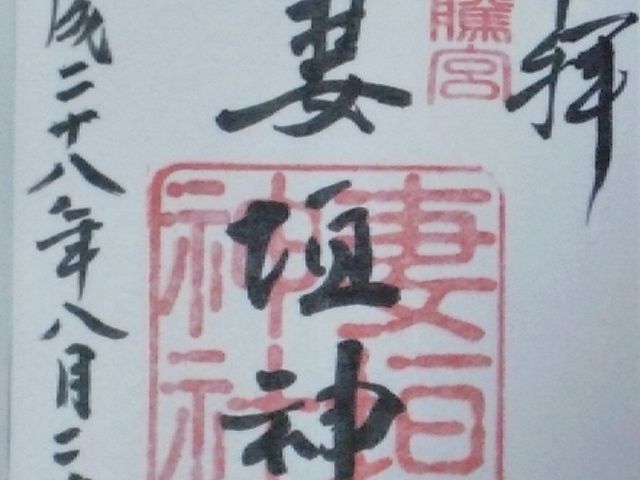 拝
騰宮
妻垣神
妻垣
神社
成二十八年八月二